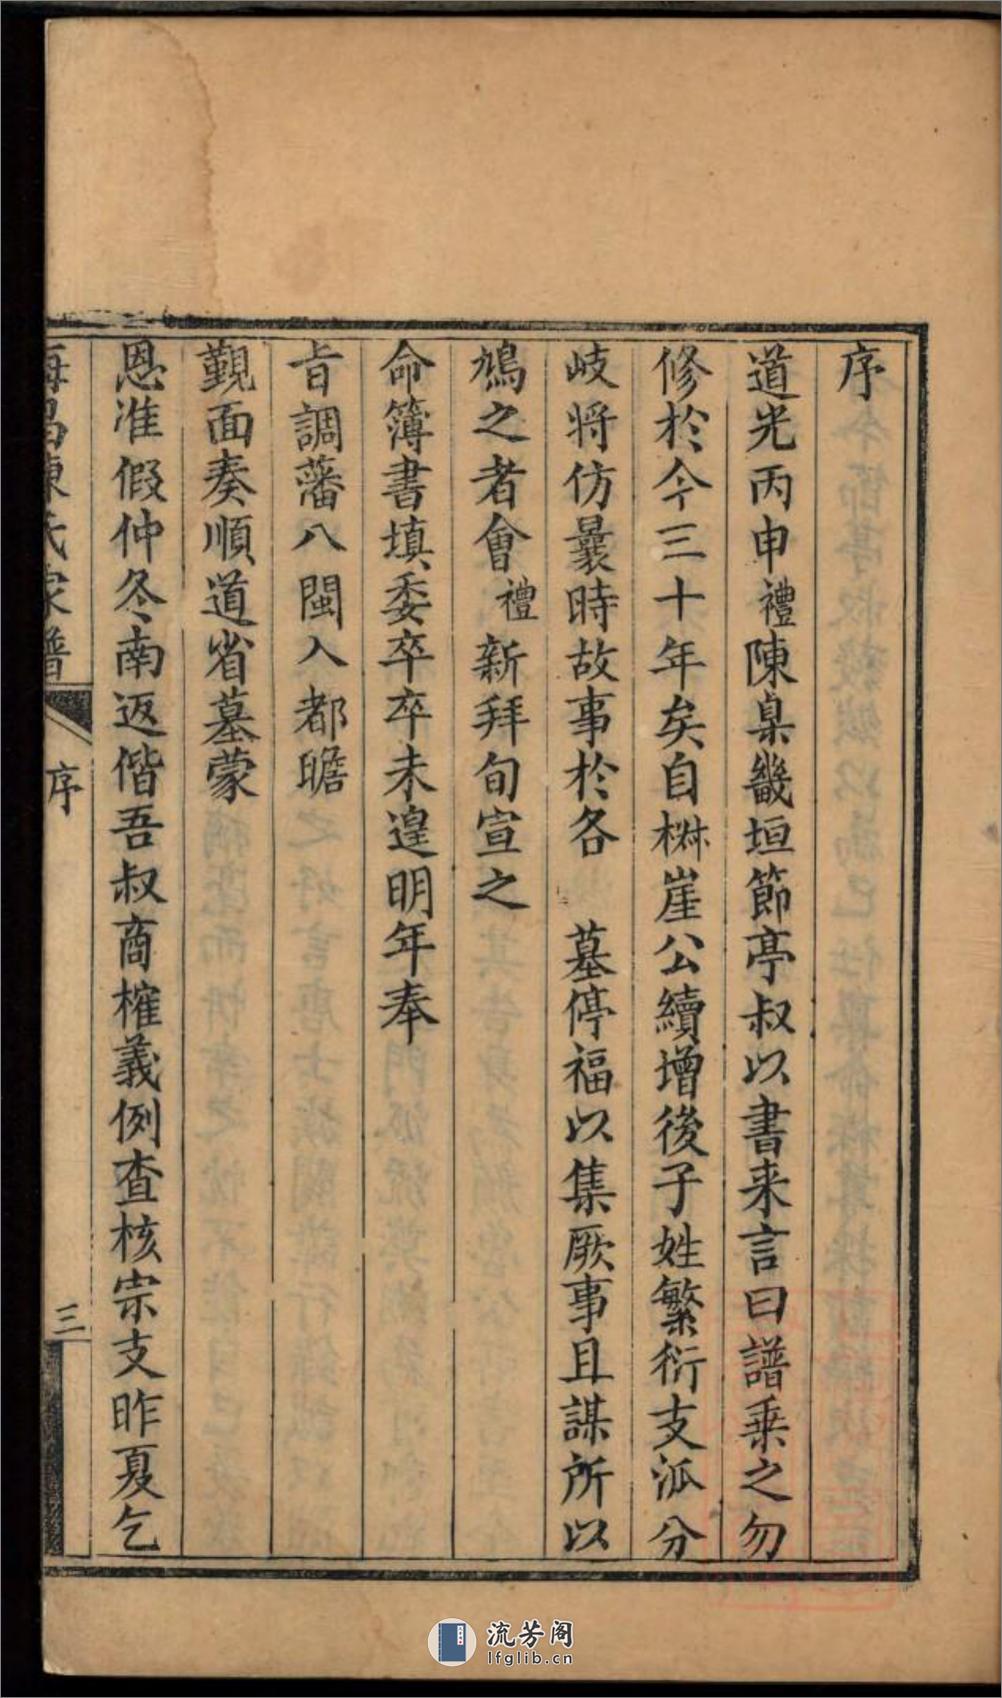 序
道光丙申禮陳臬畿垣節亭叔以書来言曰譜乗之勿
修於今三十年矣自樹崖公續增後子姓繁衍支派分
岐将仿曩時故事於各　墓停福以集厥事且謀所以
鳩之者會禮新拜旬宣之
命簿書填委卒卒未遑明年奉
旨調藩八閩入都瞻
覲面奏順道省墓蒙
恩准假仲冬南返偕吾叔商榷義例查核宗支昨夏乞
海昌陳氏家譜
序
三
流芳阁
lfglib.cn